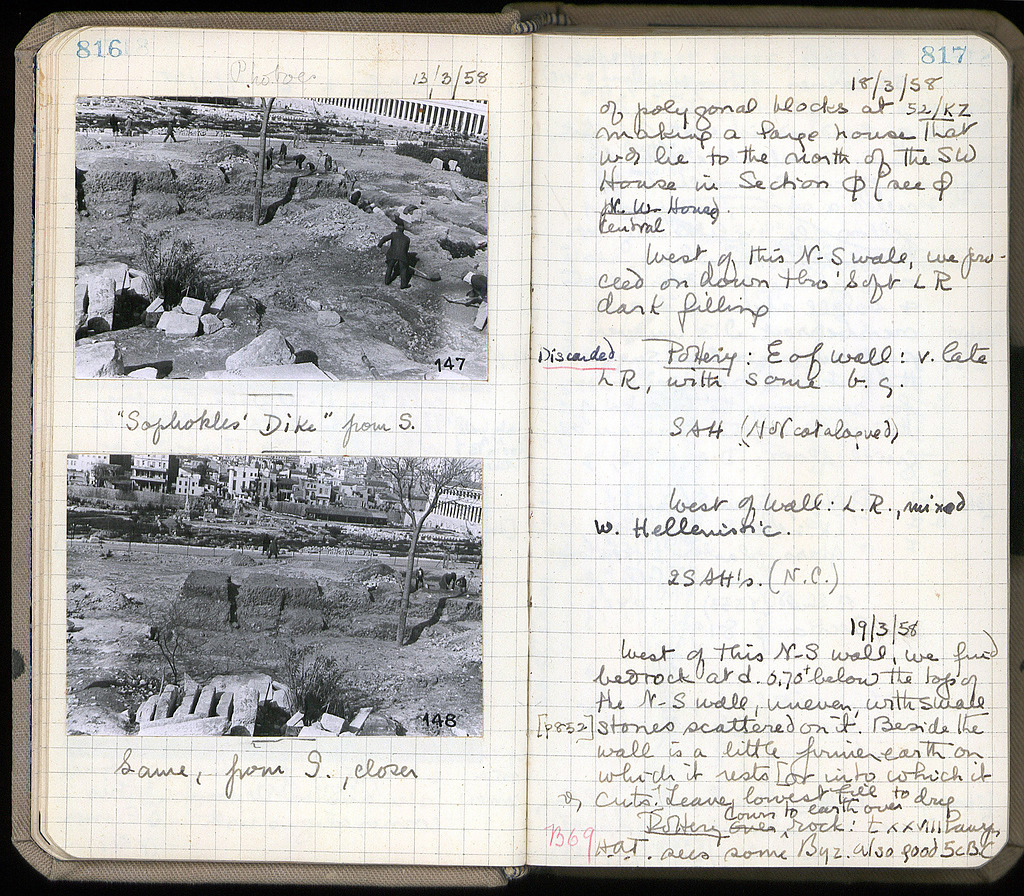 816
Photos
13/3/58
147
"Sophokles' Dike" from S.
148
Same, from S., closer
817
18/3/58
of polygonal blocks at 52/ΚΖ
making a large house that
wd lie to the north of the SW
House in Section Φ (see Φ
N. W. House).
Central
West of this N-S wall, we pro-
ceed on down thro' soft LR
dark filling
Discarded
Pottery: E of wall: v. late
LR, with some b. g.
SAH (Not catalogued)
West of wall: L.R., mixed
w. Hellenistic.
2 SAH's. (N.C.)
19/3/58
West of this N-S wall, we find
bedrock at d. 0.70± below the top of
the N-S wall, uneven, with small
[P852] stones scattered on it. Beside the
wall is a little firmer earth on
which it rests [or into which it
cuts. Leave lowest fill to drip
down to earth over
B69
Pottery over rock:
H.A.T. sees some Byz. also good 5c BC